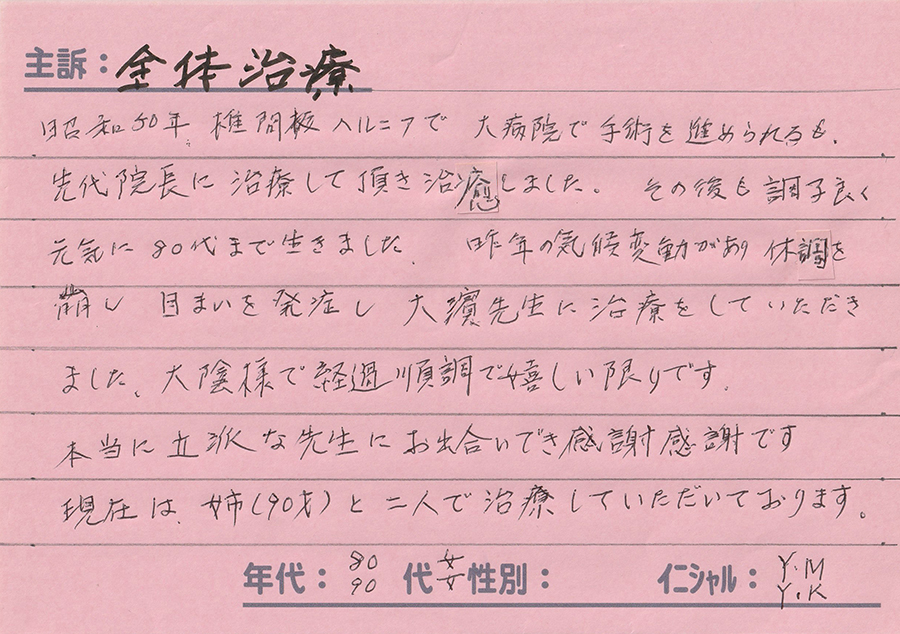 主訴：全体治療
昭和50年、椎間板ヘルニアで 大病院で手術を進められるも、
先代院長に治療して頂き治癒しました。 その後も調子良く
元気に80代まで生きました 昨年の気候変動があり体調を
崩し 目まいを発症し 大濵先生に治療をしていただき
ました、大陰様で経過順調で嬉しい限りです.
本当に立派な先生にお出合いでき感謝感謝です
現在は、姉(90才)と二人で治療していただいております。
年代： 80 代 女 性別： イニシャル： Y.M
90 女 Y.K